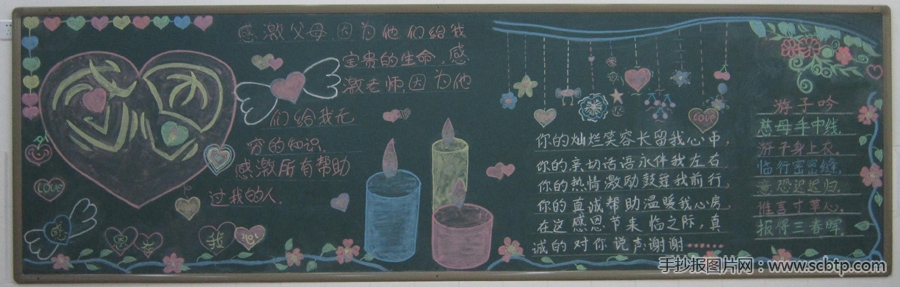 感恩
感激父母因为他们给我
宝贵的生命.感
激老师因为他
们给我无
穷的知识.
感激所有帮助
过我的人.
LOVE
感恩
LOVE
你的灿烂笑容长留我心中,
你的亲切话语永伴我左右
你的热情激励鼓舞我前行,
你的真诚帮助温暖我心房,
在这感恩节来临之际,真
诚的对你说声谢谢……
游子吟
慈母手中线,
游子身上衣.
临行密密缝,
意恐迟迟归.
谁言寸草心,
报得三春晖.
手抄报图片网：www.scbtp.com